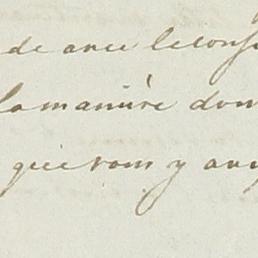 de avec le conse
la manière don
que vous y avez